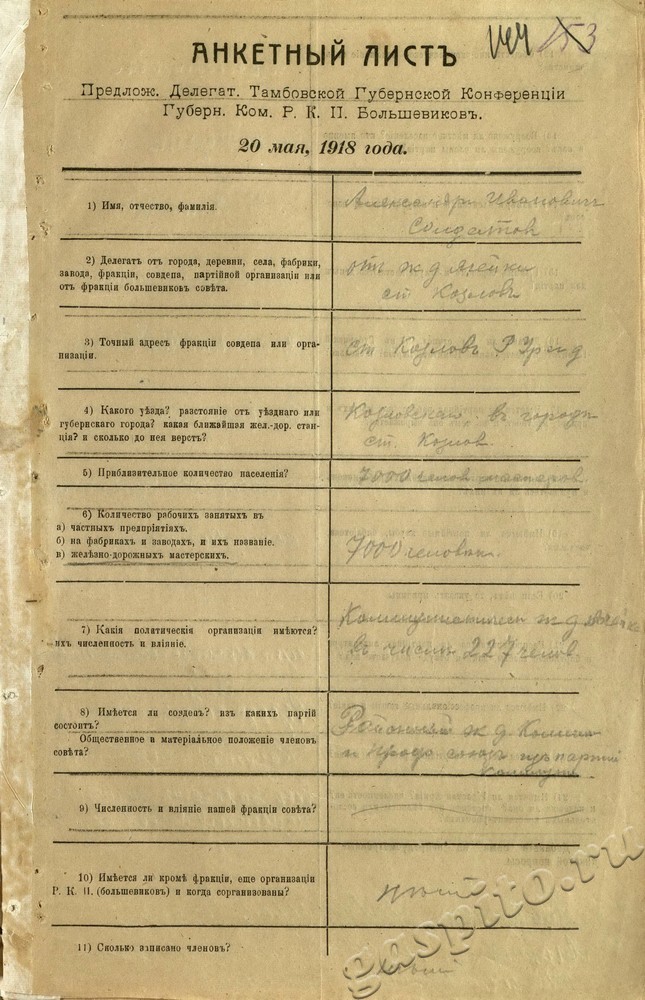 153
АНКЕТНЫЙ ЛИСТЪ
Предлож. Делегат. Тамбовской Губернской Конференціи
Губерн. Ком. Р. К. П. Большевиковъ.
20 мая, 1918 года.
1) Имя, отчество, фамилія.
Александръ Ивановичъ
Солдатов
2) Делегатъ отъ города, деревни, села, фабрики,
завода, фракціи, совдепа, партійной организаціи или
отъ фракціи большевиковъ совѣта.
отъ ж д ячейки
ст Козловъ
3) Точный адресъ фракціи совдепа или орга-
низаціи.
ст Козловъ Р У ж д
4) Какого уѣзда? разстояніе отъ уѣзднаго или
губернскаго города? какая ближайшая жел.-дор. стан-
ція? и сколько до нея верстъ?
Козловскаго въ городѣ
ст. Козлов
5) Приблизительное количество населенія?
7000 челов мастеров
6) Количество рабочихъ занятыхъ въ
а) частныхъ предпріятіяхъ.
б) на фабрикахъ и заводахъ, и ихъ названіе.
в) желѣзно-дорожныхъ мастерскихъ.
7000 человек
7) Какія политическія организаціи имѣются?
ихъ численность и вліяніе.
ж д ячейка
въ числѣ 227 челов
8) Имѣется ли совдепъ? изъ какихъ партій
состоитъ?
Общественное и матеріальное положеніе членовъ
совѣта?
Районный ж д
и Проф союз изъ партий
Коммунъ
9) Численность и вліяніе нашей фракціи совѣта?
10) Имѣется ли кромѣ фракціи, еще организаціи
Р. К. П. (большевиковъ) и когда сорганизованы?
11) Сколько записано членовъ?
gaspito.ru